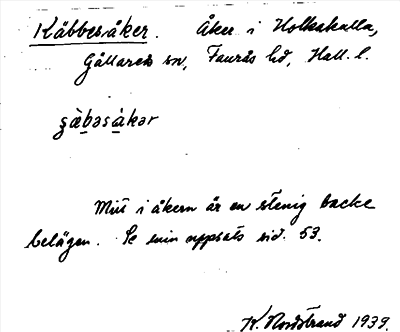 Käbbesåker. Åker i Holkakulla,
Gällareds sn, Faurås hd, Hall. l.
Mitt i åkern är en stenig backe
belägen. Se min uppsats sid. 53.
K. Nordstrand 1939.